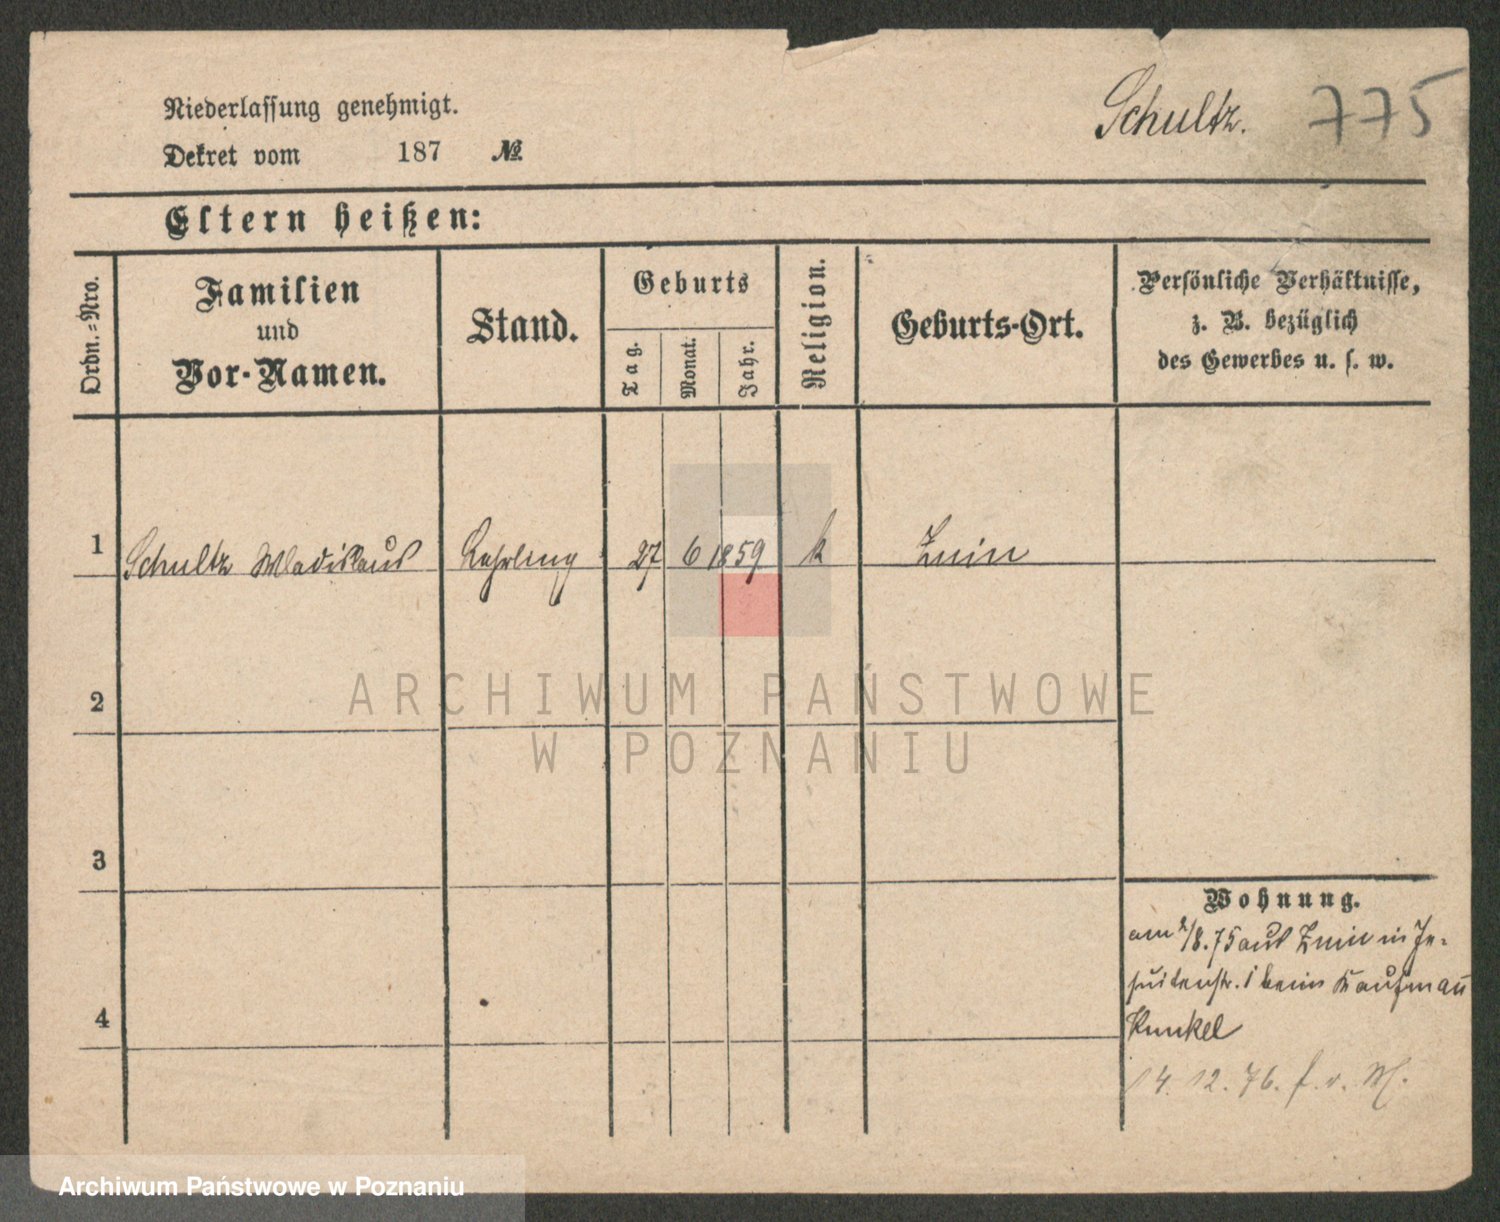 Niederlassung genehmigt.
Dekret vom 187 №
Schultz. 775
Eltern heißen:
Ordn.=Nro.
Familien
und
Vor-Namen.
Stand.
Geburts
Tag.
Monat.
Jahr.
Religion.
Geburts-Ort.
Persönliche Verhältnisse,
z. B. bezüglich
des Gewerbes u. s. w.
1 Schultz Wladislaus Lehrling 27 6 1859 k Znin
2
ARCHIWUM PAŃSTWOWE
W POZNANIU
3
Wohnung.
am 2/8.75 aus Znin in Je-
suitenstr. 1 beim Kaufmañ
Kunkel
4
14. 12. 76. f. v. M.
Archiwum Państwowe w Poznaniu